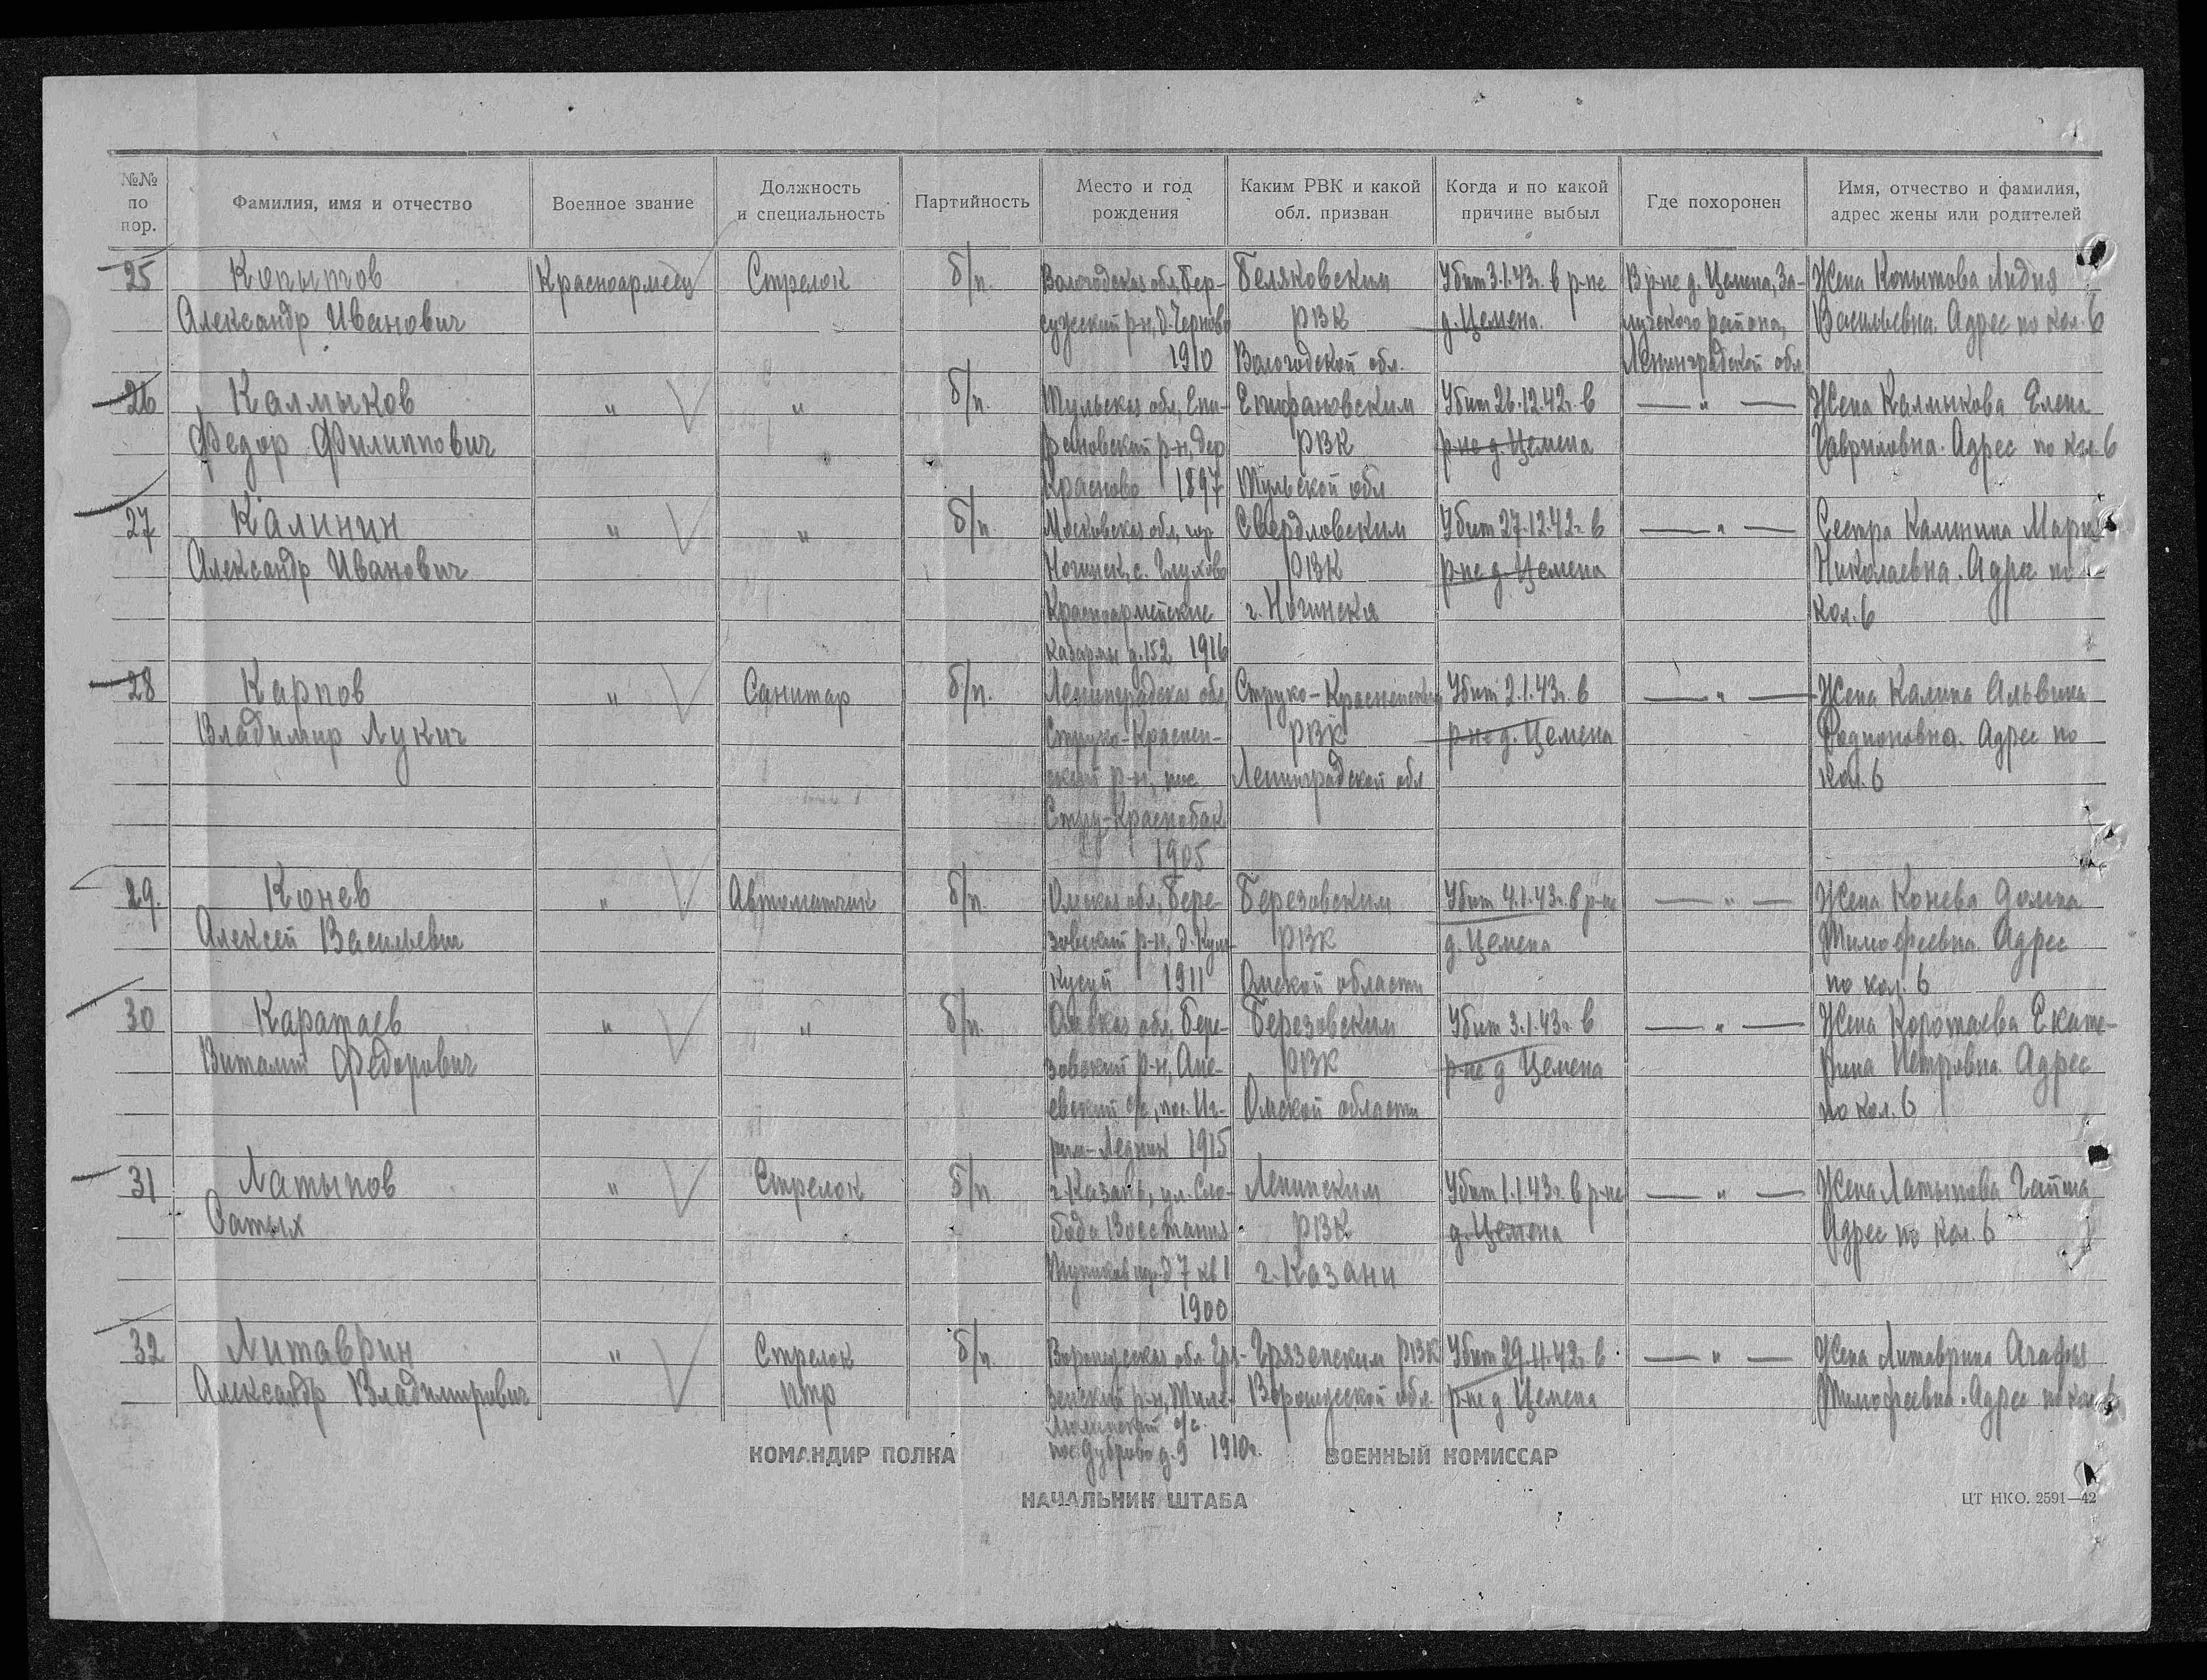 №№ по пор.
Фамилия, имя и отчество
Военное звание
Должность и специальность
Партийность
Место и год рождения
Каким РВК и какой обл. призван
Когда и по какой причине выбыл
Где похоронен
Имя, отчество и фамилия, адрес жены или родителей
25
Копытов
Александр Иванович
Красноармеец
Стрелок
б/п.
Вологодская обл,
р-н, д.
1910
Беляковским
РВК
Вологодской обл.
Убит 3.1.43г. в р-не
д. Цемена.
В р-не д. Цемена, За-
лучского района,
Ленинградской обл
Жена Копытова Лидия
Васильевна. Адрес по кол. 6
26
Калмыков
Федор Филиппович
"
"
б/п.
Тульская обл, Епи-
фановский р-н, дер
Красново 1897
Епифановским
РВК
Тульской обл
Убит 26.12.42г. в
р-не д. Цемена
— " —
Жена Калмыкова Елена
Гавриловна. Адрес по кол. 6
27
Калинин
Александр Иванович
"
"
б/п.
Московская обл, гор
Ногинск, с. Глухово
Красноармейские
казармы д. 152 1916
Свердловским
РВК
г. Ногинска
Убит 27.12.42г. в
р-не д. Цемена
— " —
Сестра Калинина Мария
Николаевна. Адрес по
кол. 6
28
Карпов
Владимир Лукич
"
Санитар
б/п.
Ленинградская обл,
Струго-Краснен-
ский р-н, пос
1905
РВК
Ленинградской обл
Убит 2.1.43г. в
р-не д. Цемена
— " —
Жена Калина Альвина
Родионовна. Адрес по
кол. 6
29.
Конев
Алексей Васильевич
"
Автоматчик
б/п.
Омская обл, Бере-
зовский р-н, д.
1911
Березовским
РВК
Омской области
Убит 4.1.43г. в р-не
д. Цемена
— " —
Жена Конева
Тимофеевна. Адрес
по кол. 6
30
Каратаев
Виталий Федорович
"
"
б/п.
Омская обл, Бере-
зовский р-н,
с/с, пос. Иг-
1915
Березовским
РВК
Омской области
Убит 3.1.43г. в
р-не д Цемена
— " —
Жена Коротаева Екате-
рина Петровна. Адрес
по кол. 6
31
Латыпов
Сатых
"
Стрелок
б/п.
г. Казань, ул. Сло-
бода Восстания
д 7 кв 1
1900
Ленинским
РВК
г. Казани
Убит 1.1.43г. в р-не
д. Цемена
— " —
Жена Латыпова
Адрес по кол. 6
32
Литаврин
Александр Владимирович
"
Стрелок
птр
б/п.
Воронежская обл. Гря-
зенский р-н,
с/с.
пос. Дуброво д. 9 1910г.
Грязенским РВК
Воронежской обл.
Убит 29.11.42г. в
р-не д. Цемена
— " —
Жена Литаврина Агафья
Тимофеевна. Адрес по кол. 6
КОМАНДИР ПОЛКА
ВОЕННЫЙ КОМИССАР
НАЧАЛЬНИК ШТАБА
ЦТ НКО. 2591—42